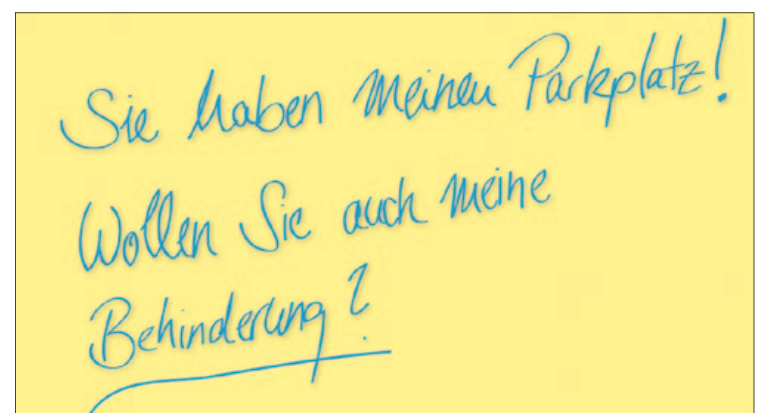 Sie haben meinen Parkplatz!
Wollen Sie auch meine
Behinderung?